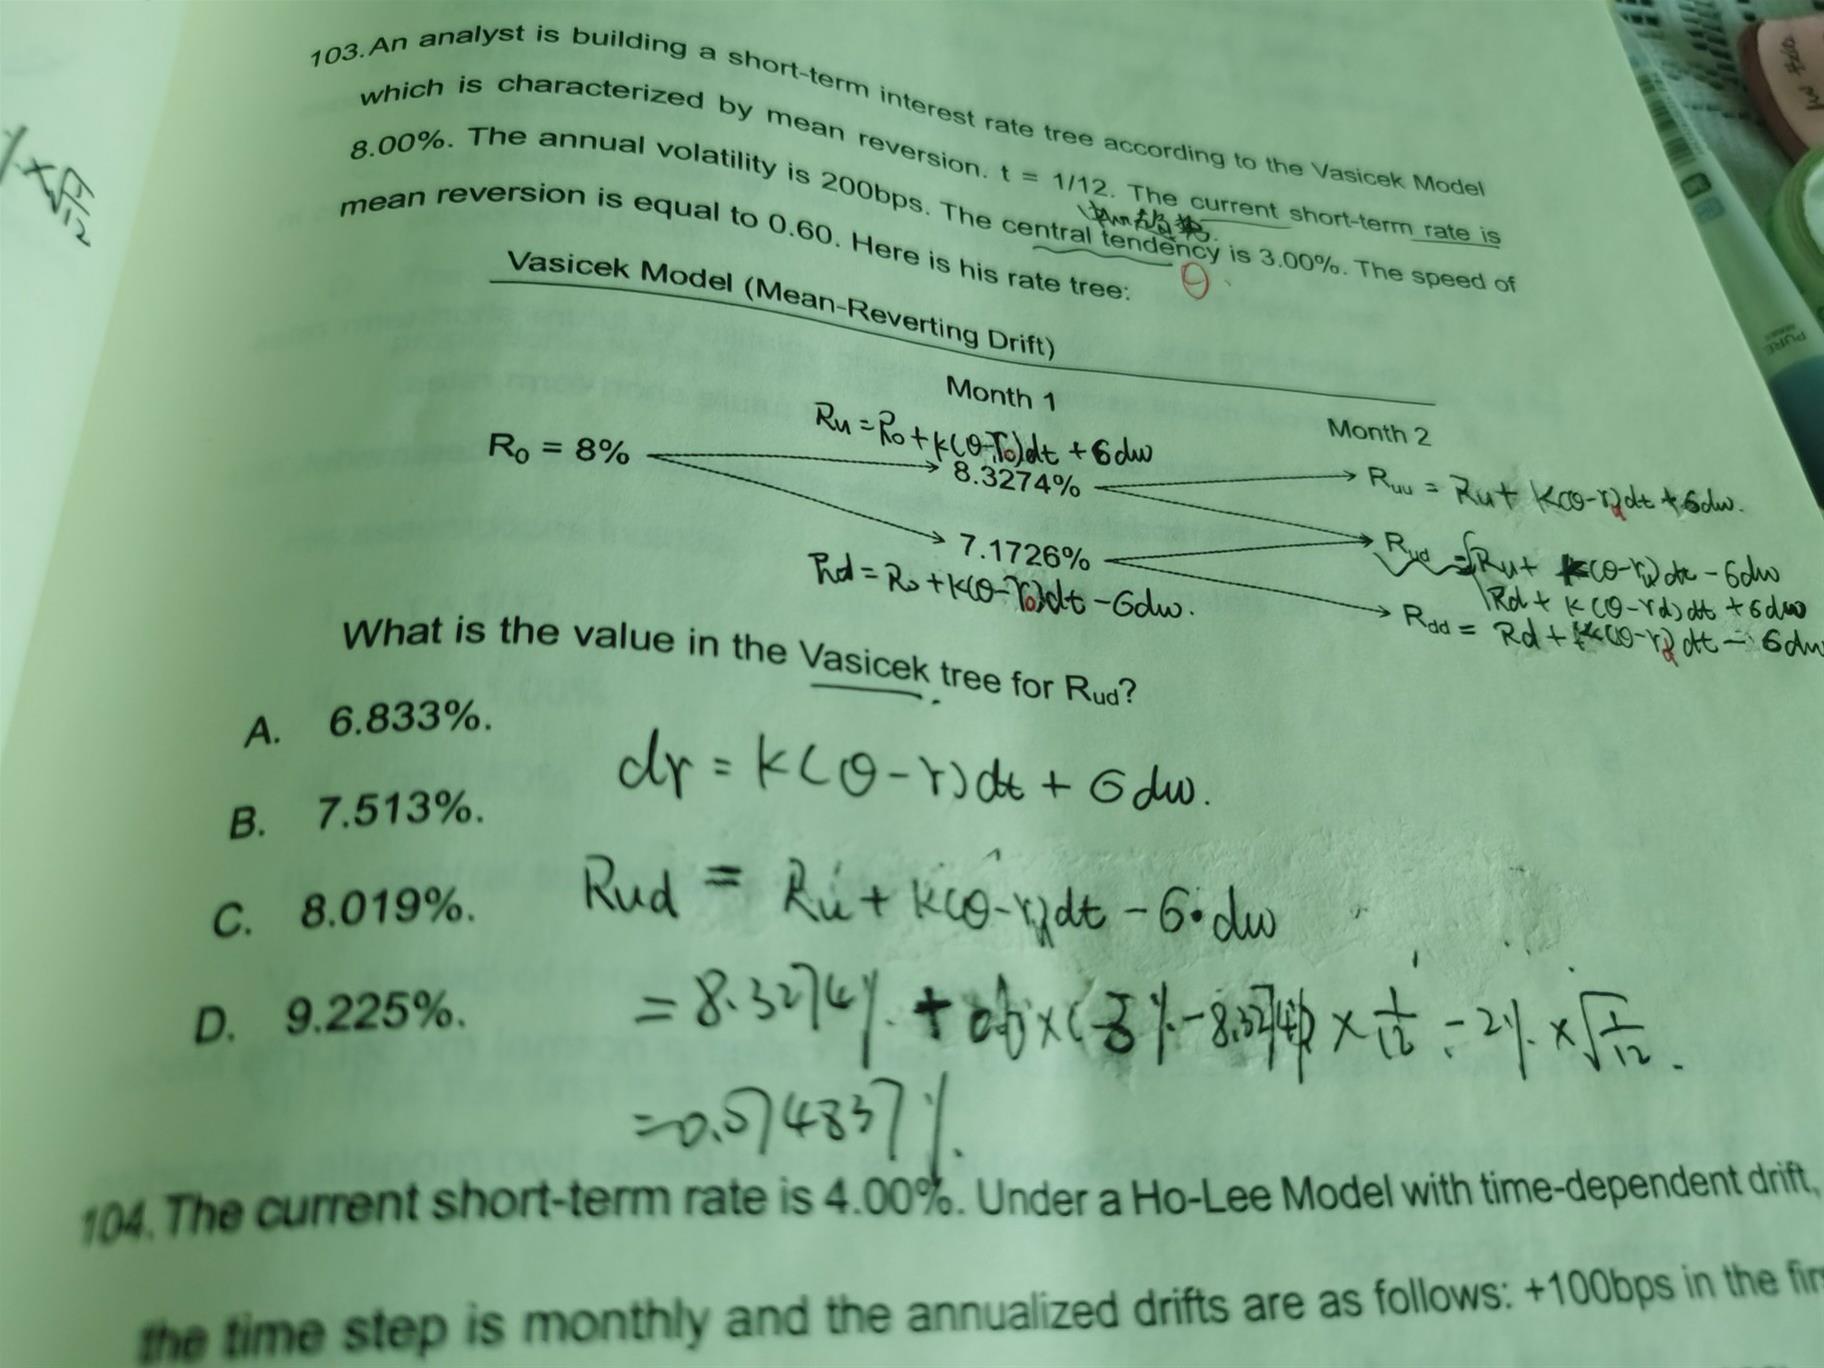 103. An analyst is building a short-term interest rate tree according to the Vasicek Model
which is characterized by mean reversion. t = 1/12. The current short-term rate is
8.00%. The annual volatility is 200bps. The central tendency is 3.00%. The speed of
θ
mean reversion is equal to 0.60. Here is his rate tree:
Vasicek Model (Mean-Reverting Drift)
Month 1
Month 2
Ru = Ro + k(θ-r0)dt + 6dw
R0 = 8%
8.3274%
Ruu = Ru + k(θ-r)dt + 6dw.
7.1726%
Rud = Ru + k(θ-ru)dt - 6dw
Rd + k(θ-rd)dt + 6dw
Rd = Ro + k(θ-r0)dt - 6dw.
Rdd = Rd + k(θ-rd)dt - 6dw
What is the value in the Vasicek tree for Rud?
A. 6.833%.
B. 7.513%.
C. 8.019%.
D. 9.225%.
dr = k(θ-r)dt + 6dw.
Rud = Ru + k(θ-r)dt - 6·dw
= 8.3274% + 0.6×(3%-8.3274%)×1/12 - 2%×√1/12.
=0.574837%.
104. The current short-term rate is 4.00%. Under a Ho-Lee Model with time-dependent drift,
the time step is monthly and the annualized drifts are as follows: +100bps in the
PURE